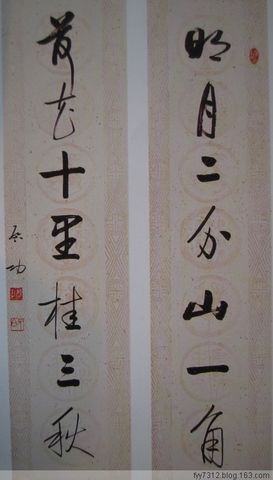 明月二分山一角
荷花十里桂三秋
启功
fyy7312.blog.163.com